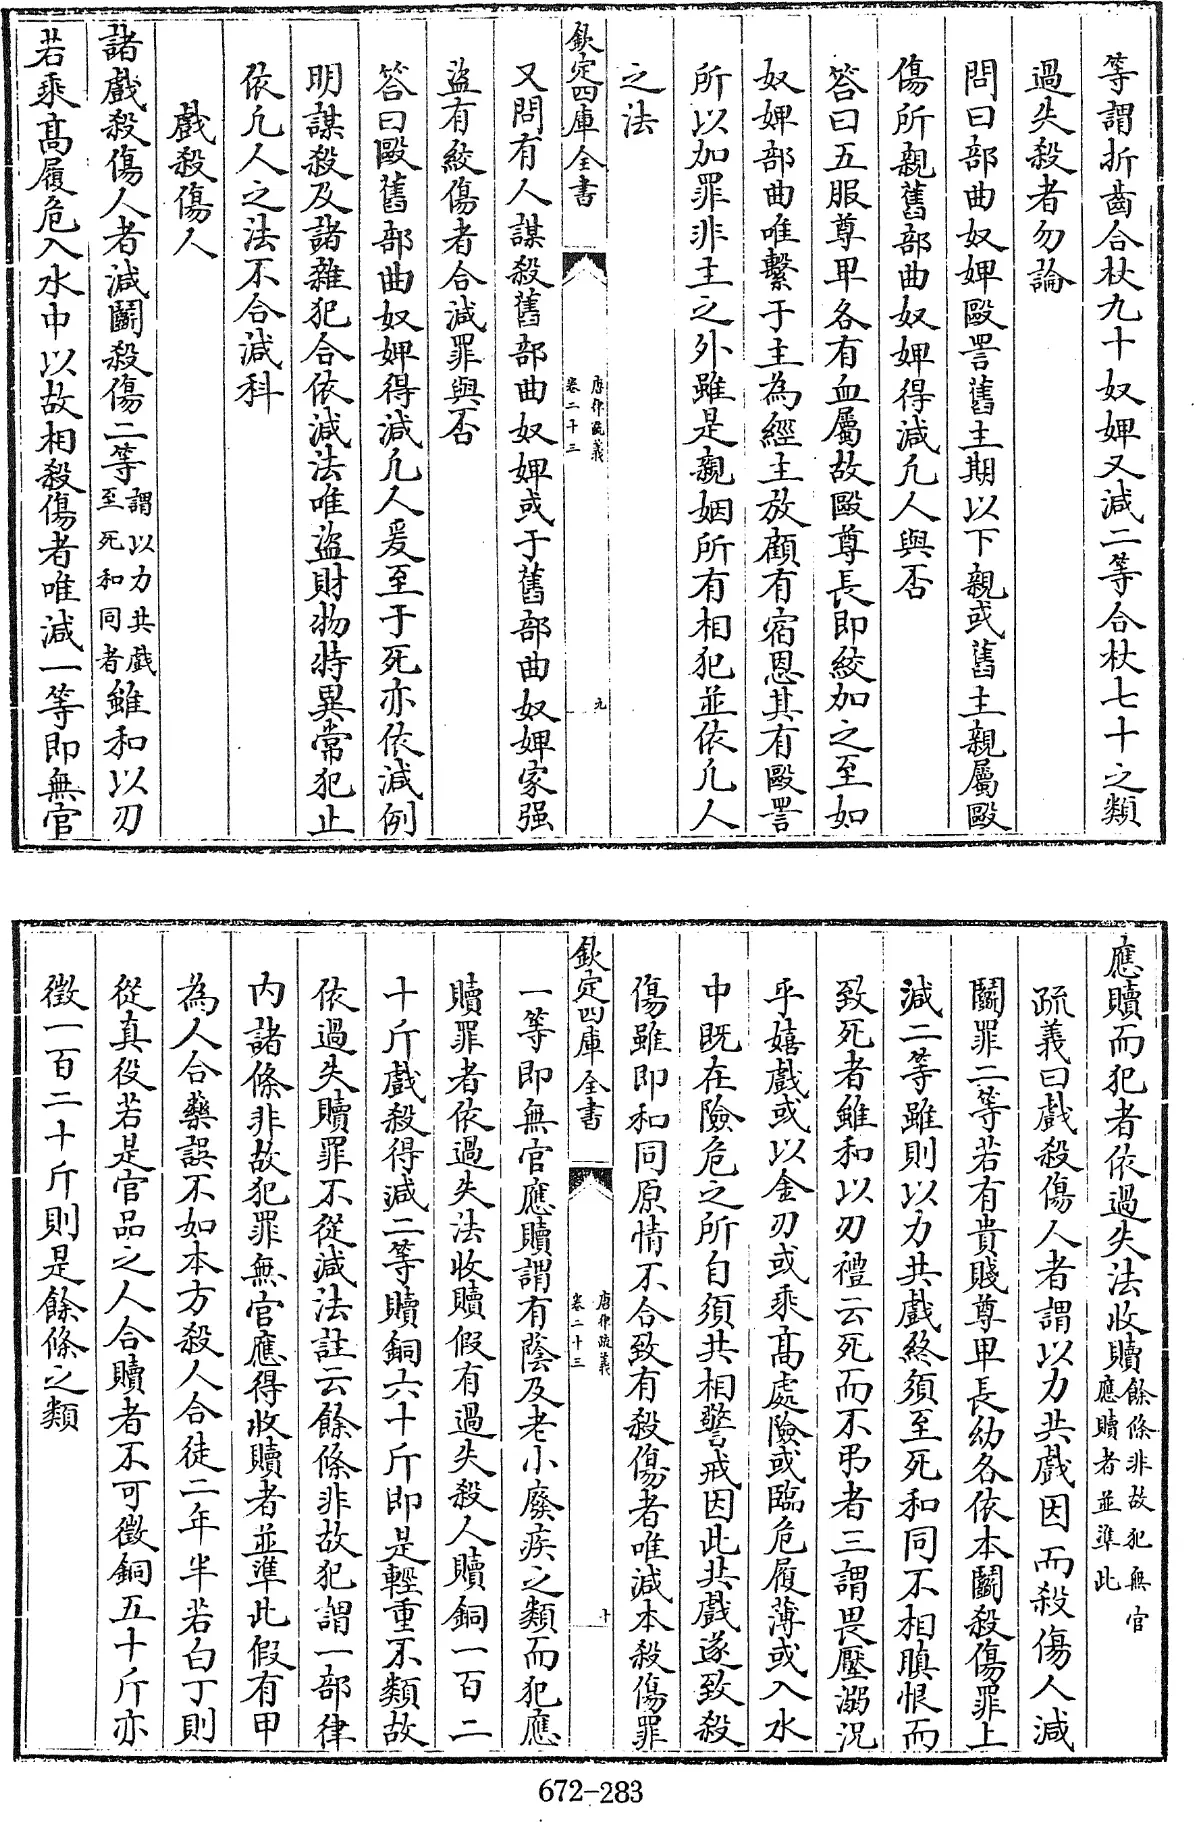 等謂折齒合杖九十奴婢又減二等合杖七十之類
過失殺者勿論
問曰部曲奴婢毆詈舊主期以下親或舊主親屬毆
傷所親舊部曲奴婢得減凡人與否
答曰五服尊卑各有血屬故毆尊長即絞加之至如
奴婢部曲唯繫于主為經主放顧有宿恩其有毆詈
所以加罪非主之外雖是親姻所有相犯並依凡人
之法
欽定四庫全書
唐律疏義
卷二十三
九
又問有人謀殺舊部曲奴婢或于舊部曲奴婢家强
盜有絞傷者合減罪與否
答曰毆舊部曲奴婢得減凡人爰至于死亦依減例
明謀殺及諸雜犯合依減法唯盜財物特異常犯止
依凡人之法不合減科
戲殺傷人
諸戲殺傷人者減鬬殺傷二等謂以力共戲至死和同者雖和以刃
若乘高履危入水中以故相殺傷者唯減一等即無官
應贖而犯者依過失法收贖餘條非故犯無官應贖者並準此
疏義曰戲殺傷人者謂以力共戲因而殺傷人減
鬬罪二等若有貴賤尊卑長幼各依本鬬殺傷罪上
減二等雖則以力共戲終須至死和同不相瞋恨而
致死者雖和以刃禮云死而不弔者三謂畏壓溺況
乎嬉戲或以金刃或乘高處險或臨危履薄或入水
中既在險危之所自須共相警戒因此共戲遂致殺
傷雖即和同原情不合致有殺傷者唯減本殺傷罪
欽定四庫全書
唐律疏義
卷二十三
十
一等即無官應贖謂有蔭及老小廢疾之類而犯應
贖罪者依過失法收贖假有過失殺人贖銅一百二
十斤戲殺得減二等贖銅六十斤即是輕重不類故
依過失贖罪不從減法註云餘條非故犯謂一部律
內諸條非故犯罪無官應得收贖者並準此假有甲
為人合藥誤不如本方殺人合徒二年半若白丁則
從真役若是官品之人合贖者不可徵銅五十斤亦
徵一百二十斤則是餘條之類
672-283